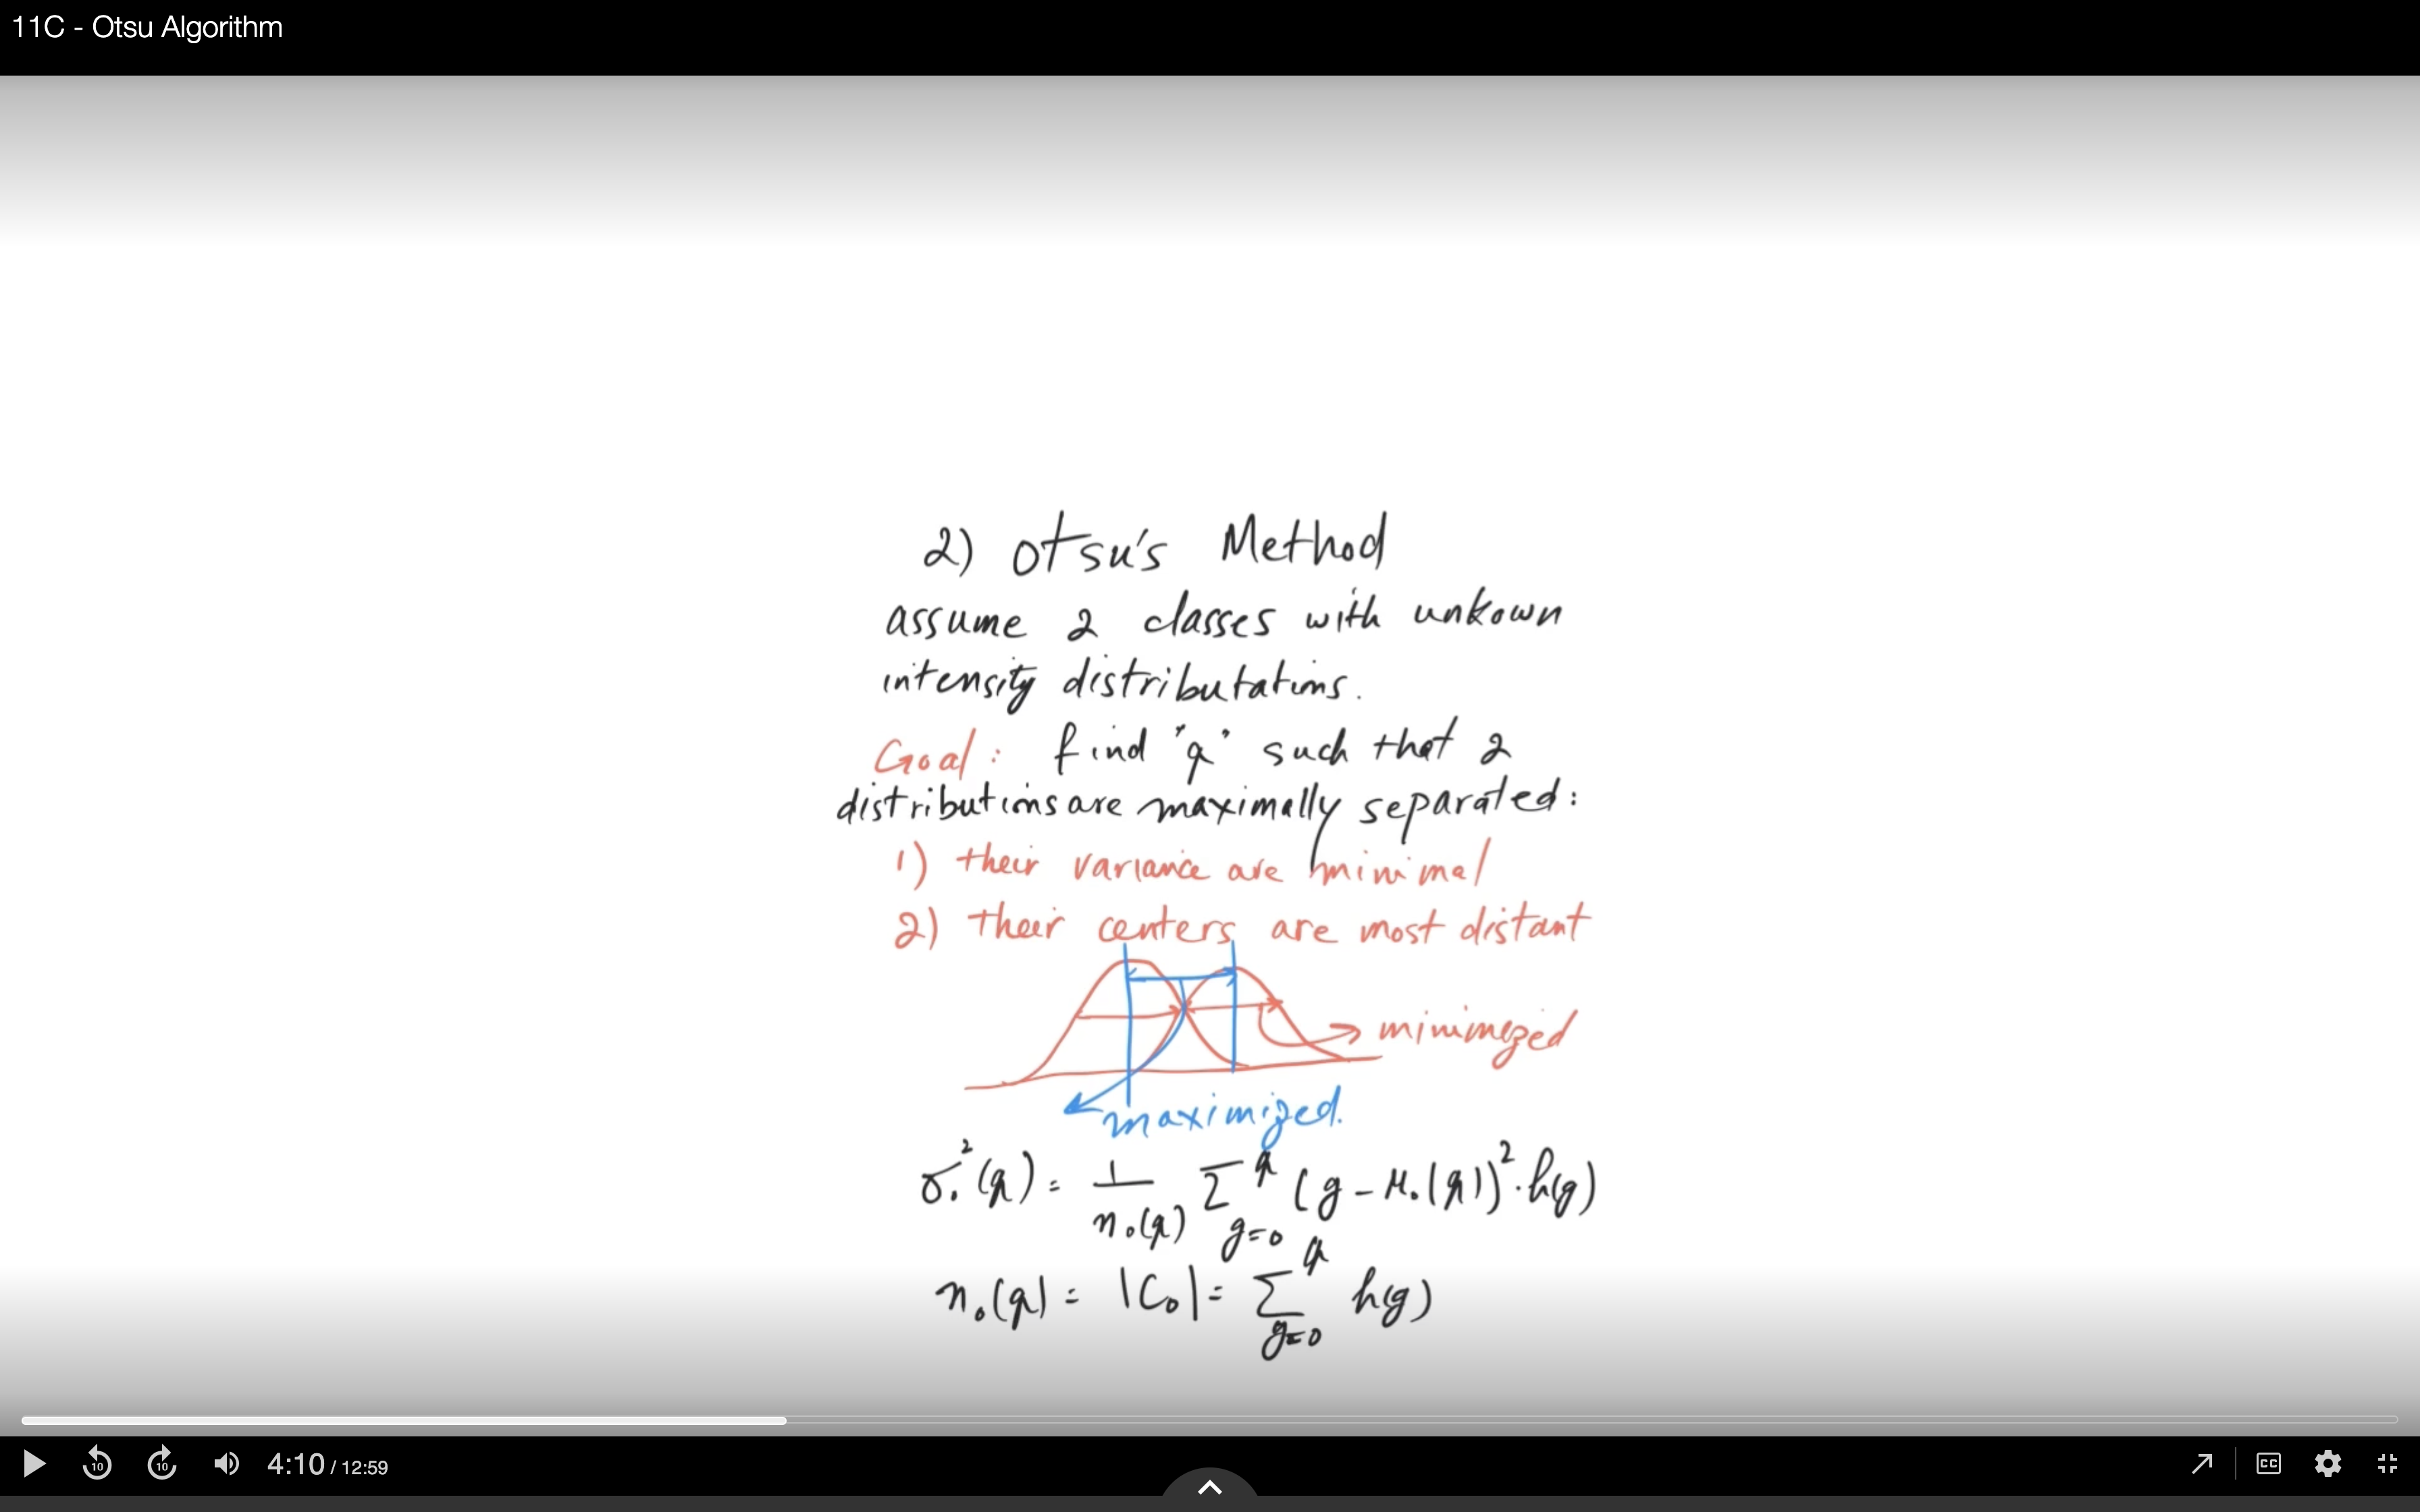 11C - Otsu Algorithm
2) Otsu's Method
assume 2 classes with unkown
intensity distributations.
Goal: find "q" such that 2
distributions are maximally separated:
1) their variance are minimal
2) their centers are most distant
minimized
maximized.
σ₀²(q) = 1/n₀(q) Σ_{g=0}^{q} (g - μ₀(q))² · h(g)
n₀(q) = |C₀| = Σ_{g=0}^{q} h(g)
10 10 4:10 / 12:59 CC